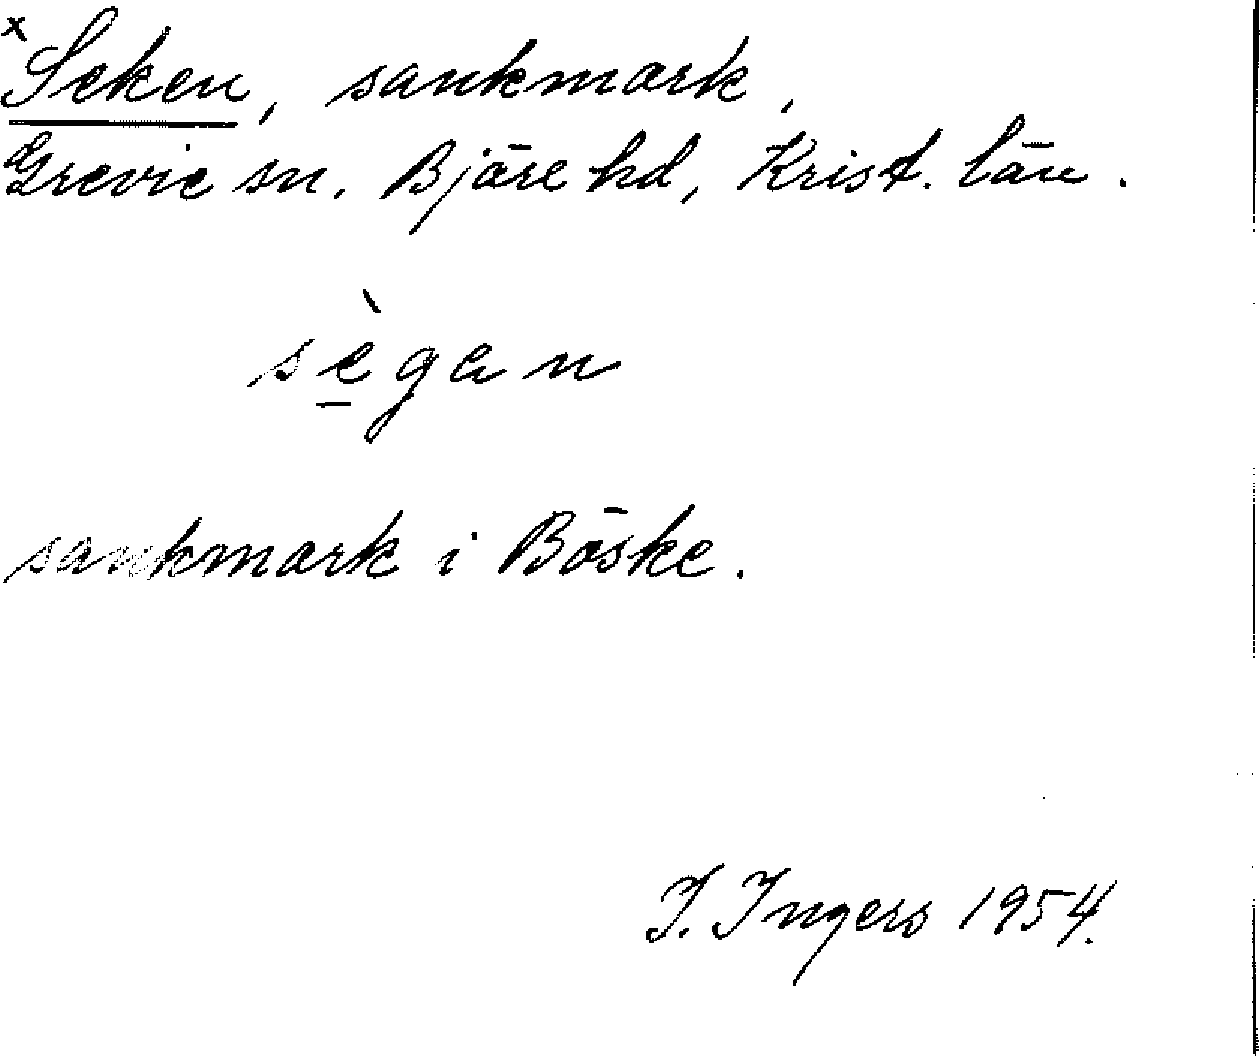 x Seken, sankmark,
Grevie sn. Bjäre hd, Krist. län.
sègan
sankmark i Böske.
I. Ingers 1954.